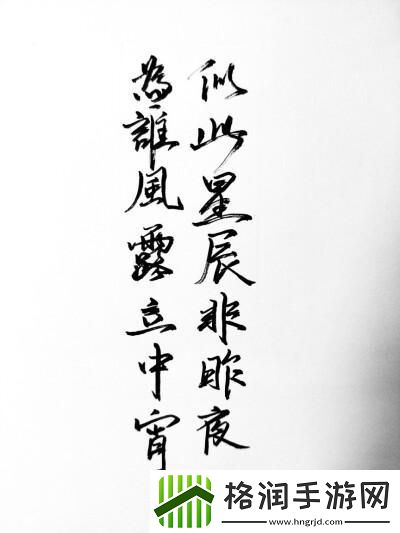 似此星辰非昨夜
為誰風露立中宵
格润手游网
www.hngrjd.com